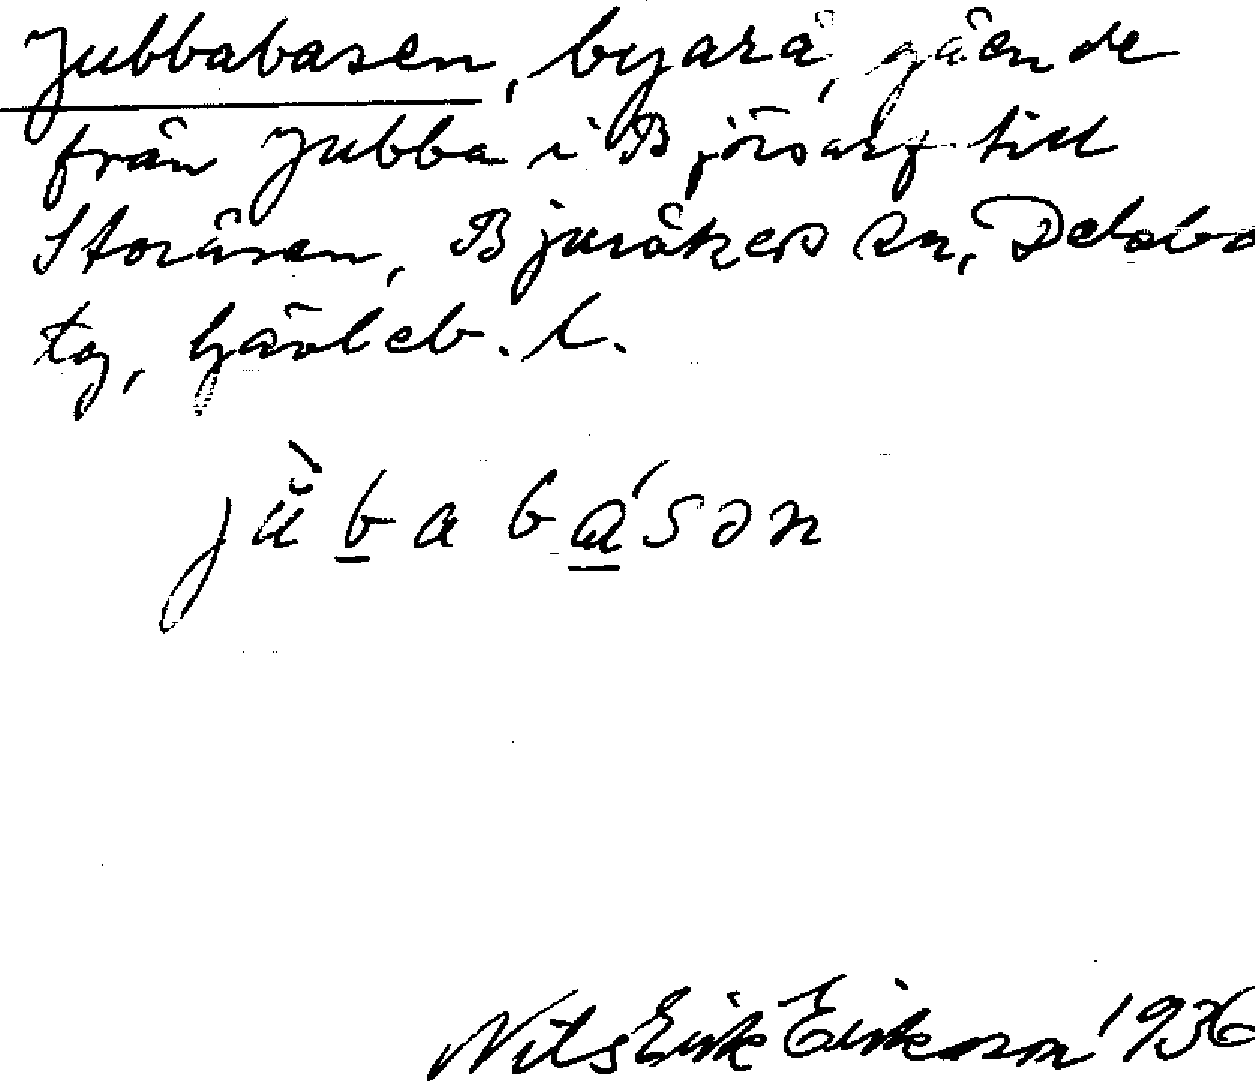 Jubbabasen, byarå, gående
från Jubba i Bjørsarf till
Storåsen, Bjuråkers sn, Delsbo
tg, Gävleb. l.
jùbabásən
Nils Erik Eriksson 1936